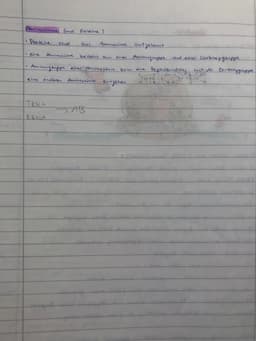 Aminosäuren und Proteine!
• Proteine sind aus Aminosäuren aufgebaut
• eine Aminosäure besteht aus einer Aminogruppe und einer Carboxygruppe
• Aminogruppe einer Aminosäure kann eine Peptidbindung mit der Carboxygruppe
einer anderen Aminosäure eingehen
→ AB